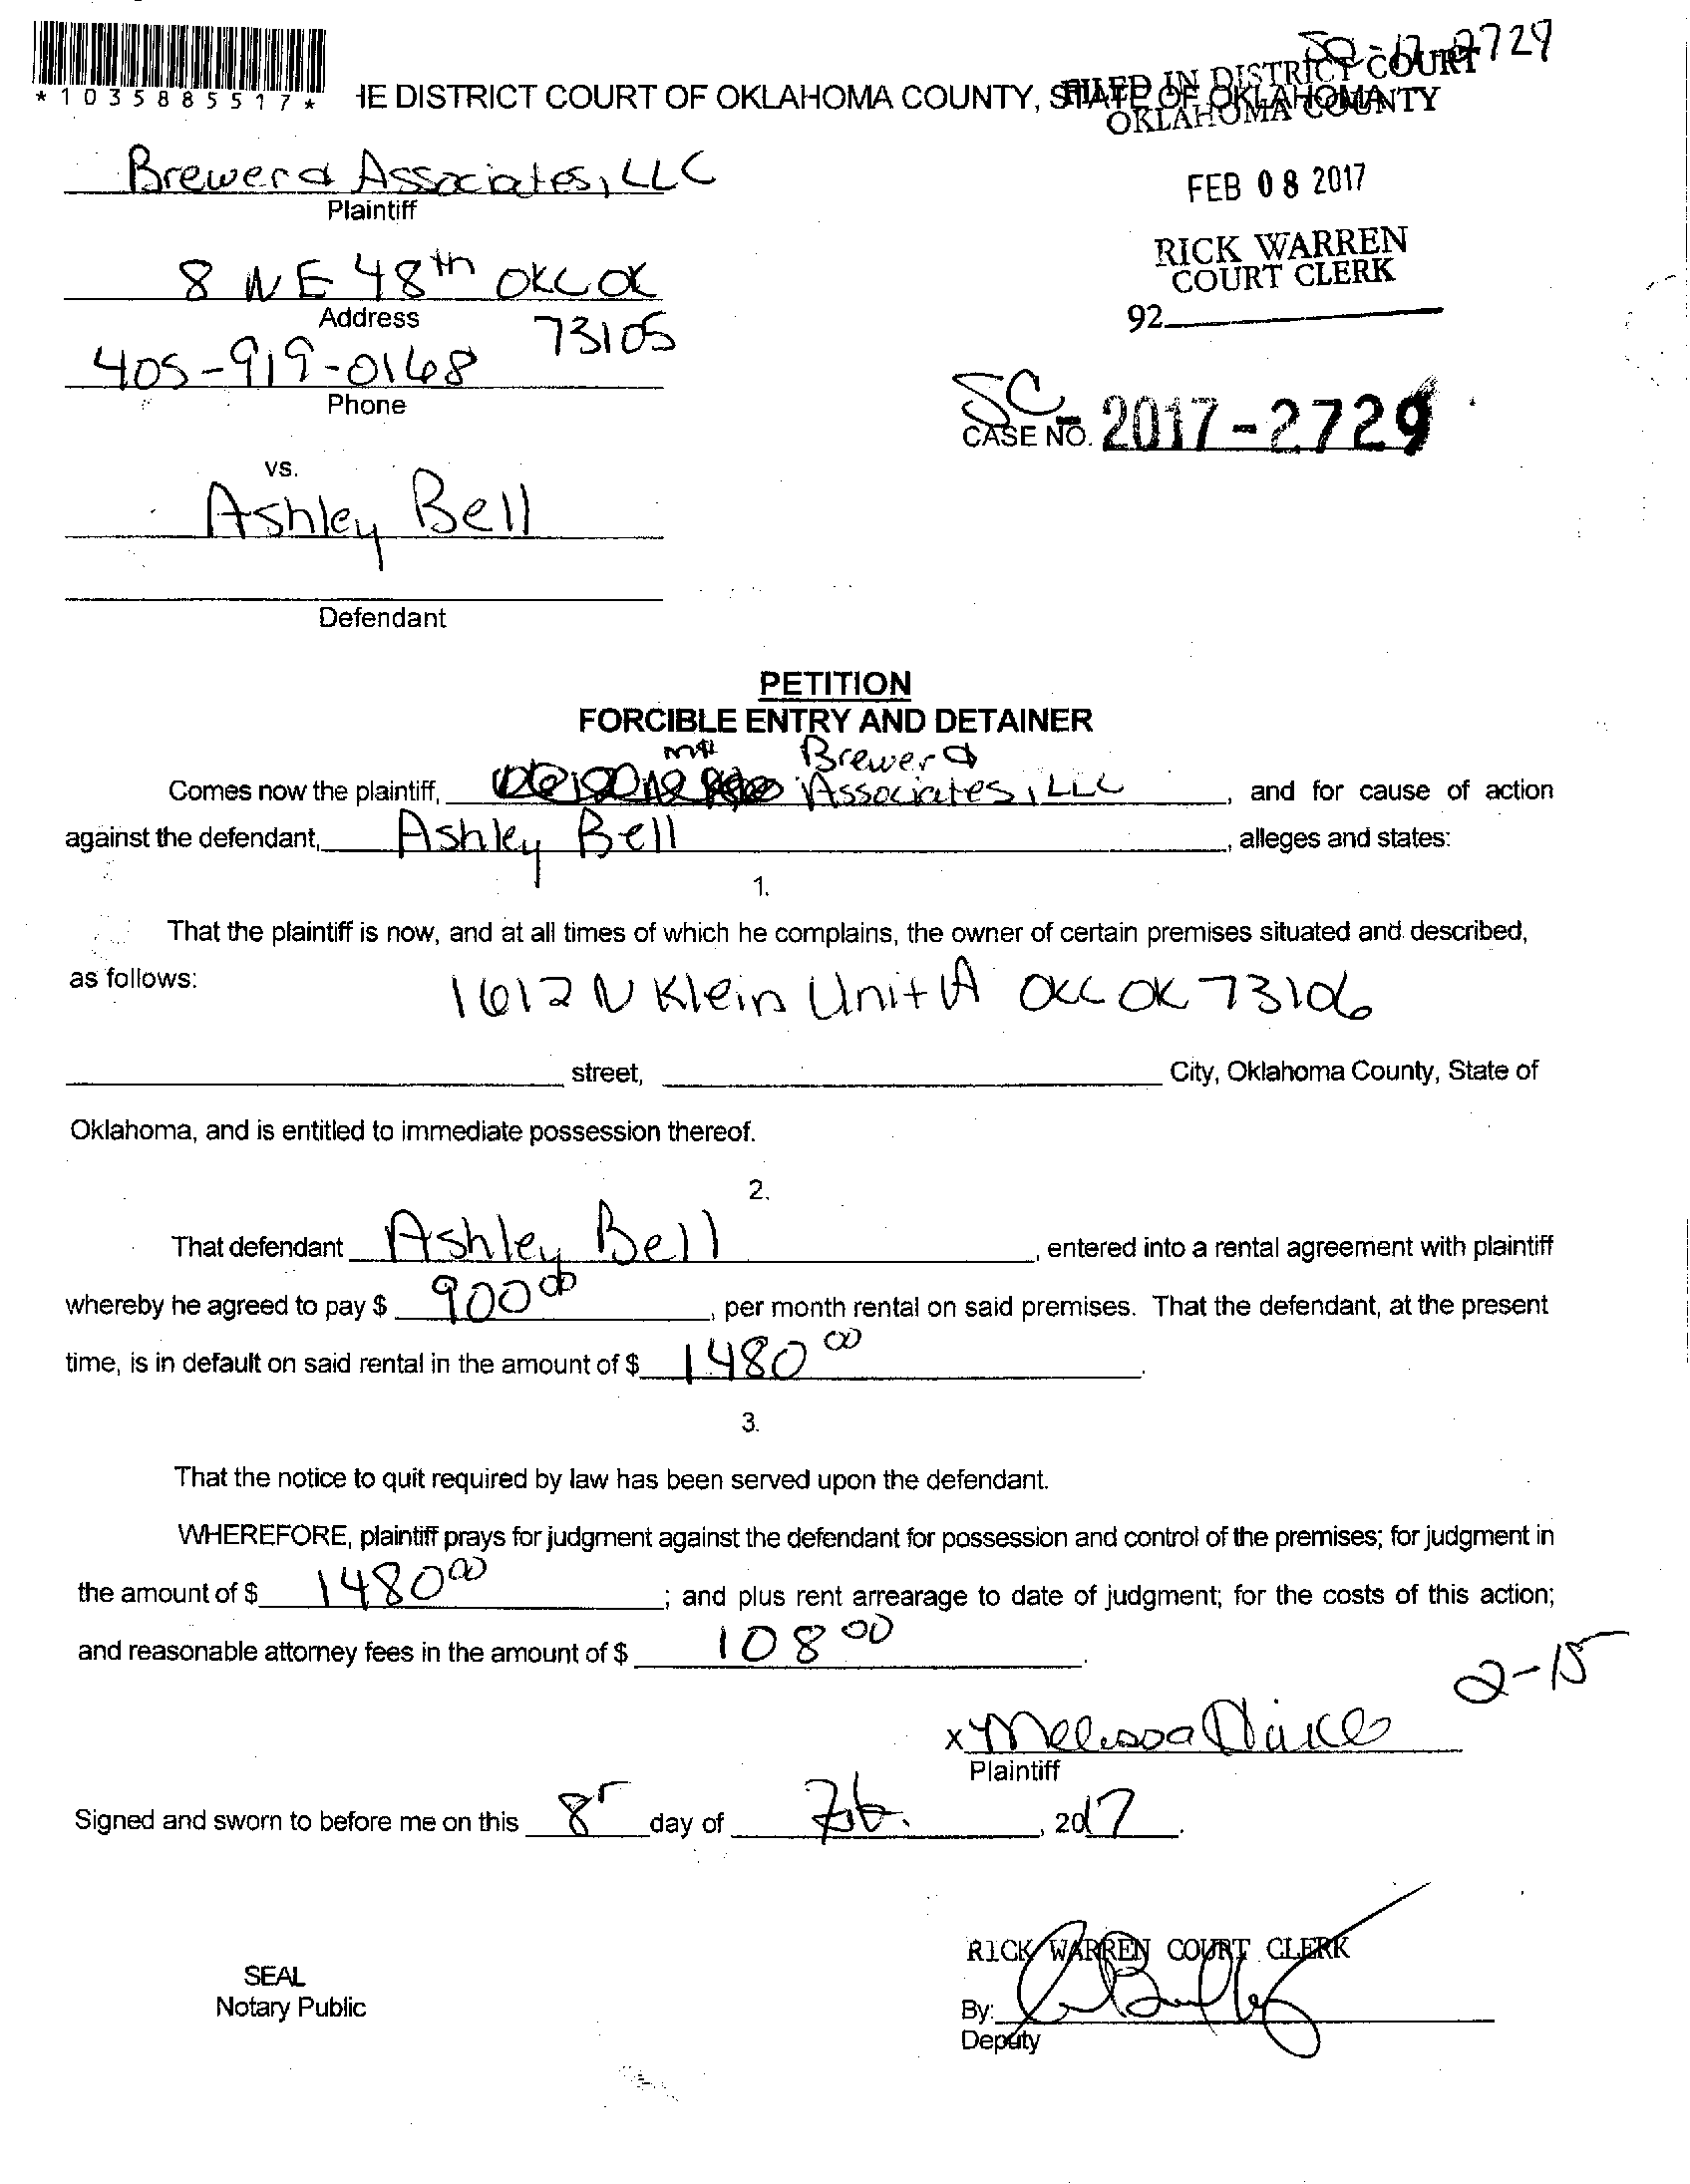 SC-17-2729
*1035885517*
HE DISTRICT COURT OF OKLAHOMA COUNTY, STATE OF OKLAHOMA
FILED IN DISTRICT COURT
OKLAHOMA COUNTY
Brewer & Associates, LLC
Plaintiff
FEB 08 2017
RICK WARREN
COURT CLERK
8 NE 48th OKC OK
Address
73105
92
405-919-0168
Phone
SC-
CASE NO. 2017-2729
vs.
Ashley Bell
Defendant
PETITION
FORCIBLE ENTRY AND DETAINER
Brewer &
Comes now the plaintiff, Associates, LLC, and for cause of action
against the defendant, Ashley Bell, alleges and states:
1.
That the plaintiff is now, and at all times of which he complains, the owner of certain premises situated and described,
as follows:
1612 N Klein Unit A OKC OK 73106
street, City, Oklahoma County, State of
Oklahoma, and is entitled to immediate possession thereof.
2.
That defendant Ashley Bell, entered into a rental agreement with plaintiff
whereby he agreed to pay $ 900 00, per month rental on said premises. That the defendant, at the present
time, is in default on said rental in the amount of $ 1480 00.
3.
That the notice to quit required by law has been served upon the defendant.
WHEREFORE, plaintiff prays for judgment against the defendant for possession and control of the premises; for judgment in
the amount of $ 1480 00; and plus rent arrearage to date of judgment; for the costs of this action;
and reasonable attorney fees in the amount of $ 108 00.
2-15
x Melissa
Plaintiff
Signed and sworn to before me on this 8 day of Feb., 2017.
RICK WARREN COURT CLERK
SEAL
Notary Public
By:
Deputy